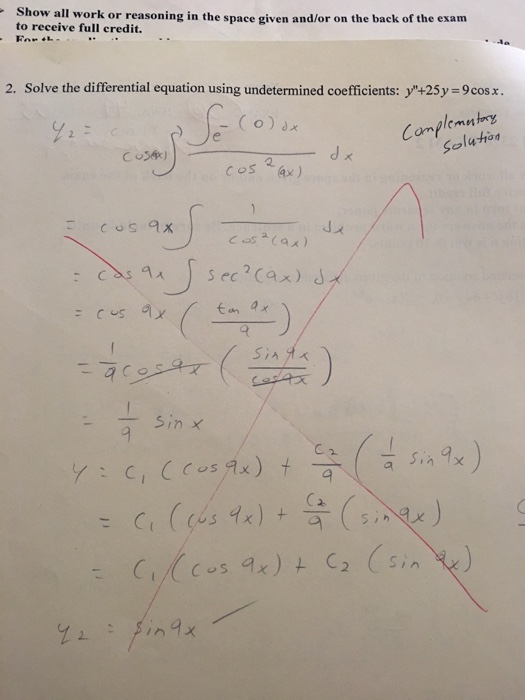 Show all work or reasoning in the space given and/or on the back of the exam
to receive full credit.
2. Solve the differential equation using undetermined coefficients: y"+25y=9cosx.
Complementary
Solution
y₂ = cos(9x) ∫ ∫e^-(0)dx / cos²(9x) dx
= cos 9x ∫ 1 / cos²(9x) dx
= cos 9x ∫ sec²(9x) dx
= cos 9x ( tan 9x / 9 )
= 1/9 cos9x ( sin 9x / cos9x )
= 1/9 sin x
y = C₁ (cos 9x) + C₂/9 ( 1/9 sin 9x )
= C₁ (cos 9x) + C₂/9 (sin 9x)
= C₁ (cos 9x) + C₂ (sin 9x)
y₂ = sin9x